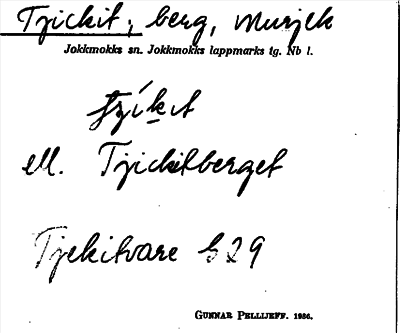 Tjickit, berg, Murjek
Jokkmokks sn. Jokkmokks lappmarks tg. Nb l.
ell. Tjickitberget
Tjekitvare G 29
GUNNAR PELLIJEFF. 1936.